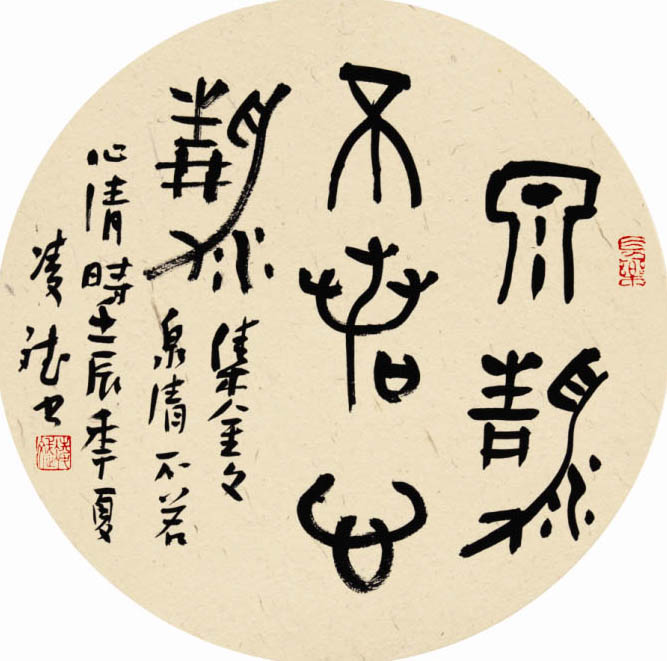 泉清
不若心
清
集金文
泉清不若
心清時壬辰季夏
凌书